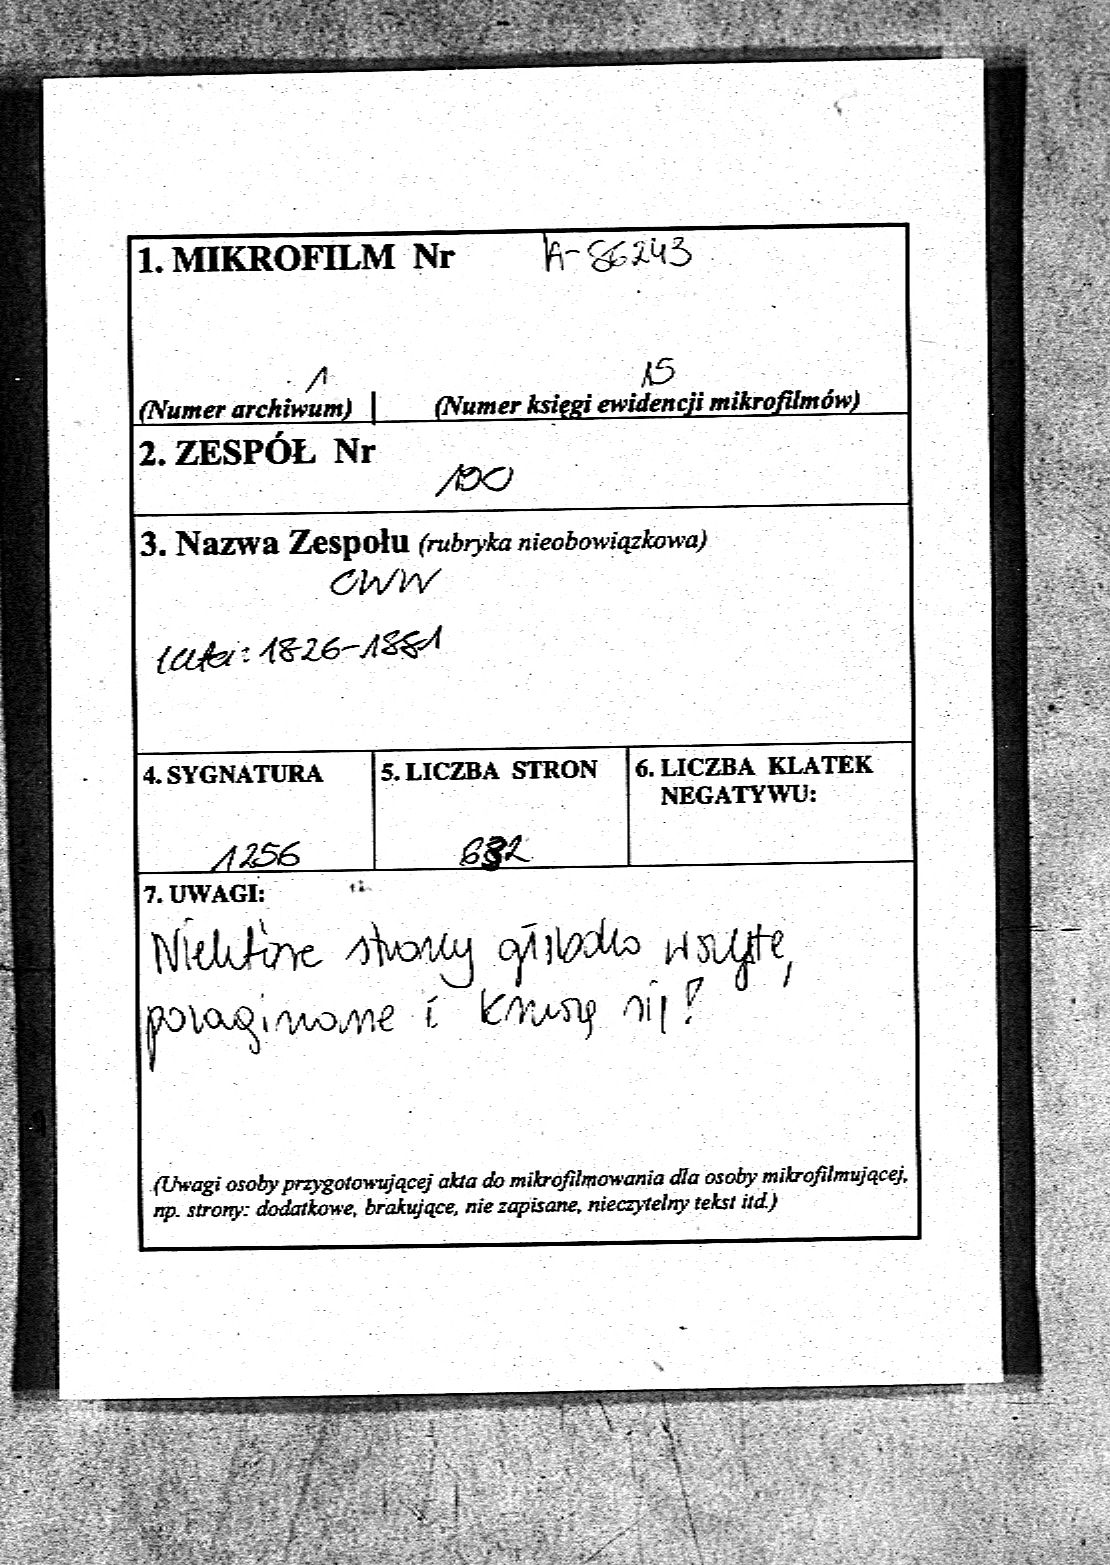 1. MIKROFILM Nr A-86243
1 15
(Numer archiwum) | (Numer księgi ewidencji mikrofilmów)
2. ZESPÓŁ Nr
190
3. Nazwa Zespołu (rubryka nieobowiązkowa)
CWW
lata: 1826-1881
4. SYGNATURA 5. LICZBA STRON 6. LICZBA KLATEK
NEGATYWU:
1256 632
7. UWAGI:
Niektóre strony głęboko wszyte,
pozaginane i kruszą się!
(Uwagi osoby przygotowującej akta do mikrofilmowania dla osoby mikrofilmującej,
np. strony: dodatkowe, brakujące, nie zapisane, nieczytelny tekst itd.)